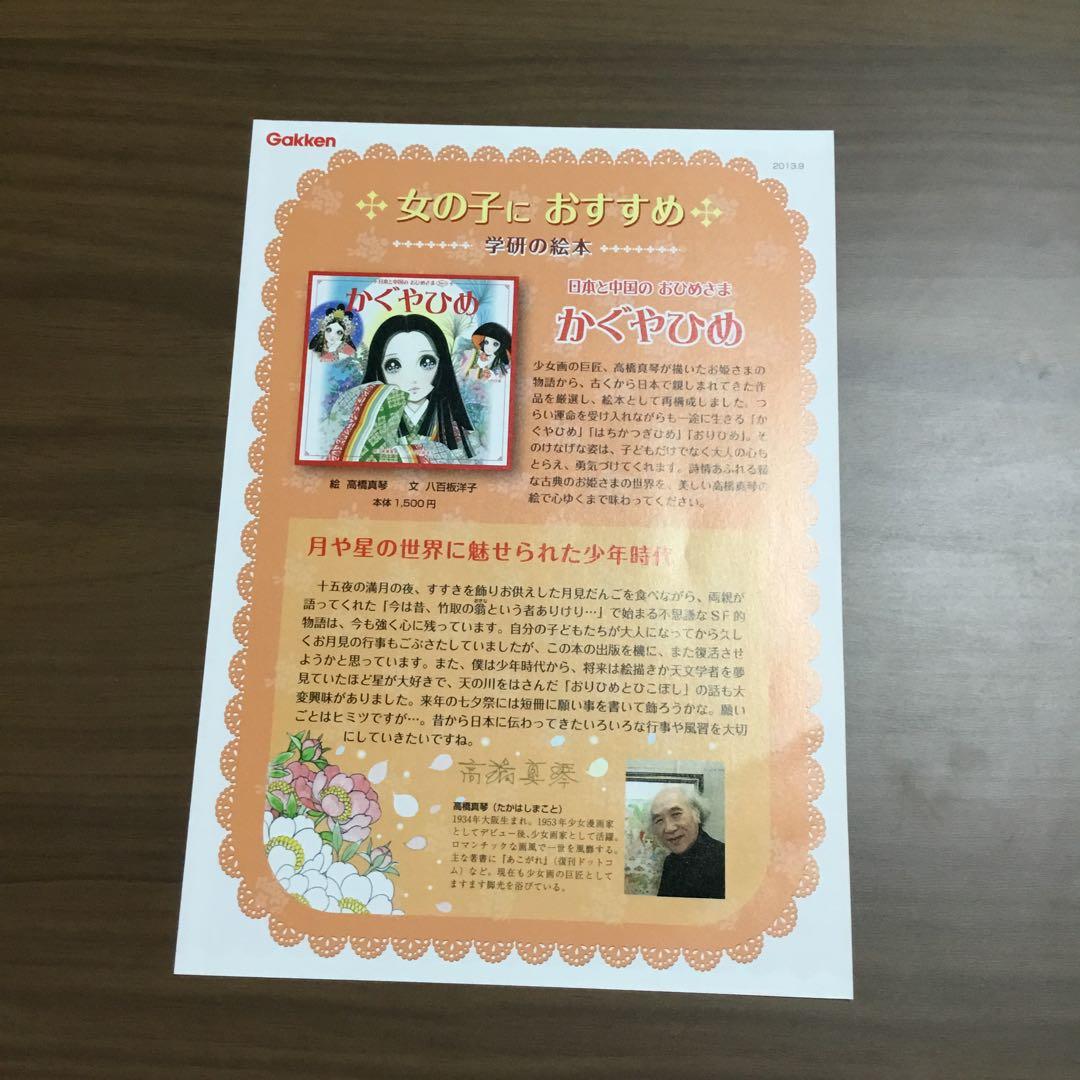 Gakken
2013.9
女の子に おすすめ
学研の絵本
日本と中国の おひめさま
かぐやひめ
日本と中国の おひめさま
かぐやひめ
少女画の巨匠、高橋真琴が描いたお姫さまの
物語から、古くから日本で親しまれてきた作
品を厳選し、絵本として再構成しました。つ
らい運命を受け入れながらも一途に生きる「か
ぐやひめ」「はちかつぎひめ」「おりひめ」。そ
のけなげな姿は、子どもだけでなく大人の心も
とらえ、勇気づけてくれます。詩情あふれる雅
な古典のお姫さまの世界を、美しい高橋真琴の
絵で心ゆくまで味わってください。
絵 高橋真琴 文 八百板洋子
本体 1,500 円
月や星の世界に魅せられた少年時代
十五夜の満月の夜、すすきを飾りお供えした月見だんごを食べながら、両親が
語ってくれた「今は昔、竹取の翁という者ありけり…」で始まる不思議なSF的
物語は、今も強く心に残っています。自分の子どもたちが大人になってから久し
くお月見の行事もごぶさたしていましたが、この本の出版を機に、また復活させ
ようかと思っています。また、僕は少年時代から、将来は絵描きか天文学者を夢
見ていたほど星が大好きで、天の川をはさんだ「おりひめとひこぼし」の話も大
変興味がありました。来年の七夕祭には短冊に願い事を書いて飾ろうかな。願い
ごとはヒミツですが…。昔から日本に伝わってきたいろいろな行事や風習を大切
にしていきたいですね。
高橋真琴
高橋真琴（たかはしまこと）
1934年大阪生まれ。1953年少女漫画家
としてデビュー後、少女画家として活躍。
ロマンチックな画風で一世を風靡する。
主な著書に『あこがれ』（復刊ドットコ
ム）など。現在も少女画の巨匠として
ますます脚光を浴びている。